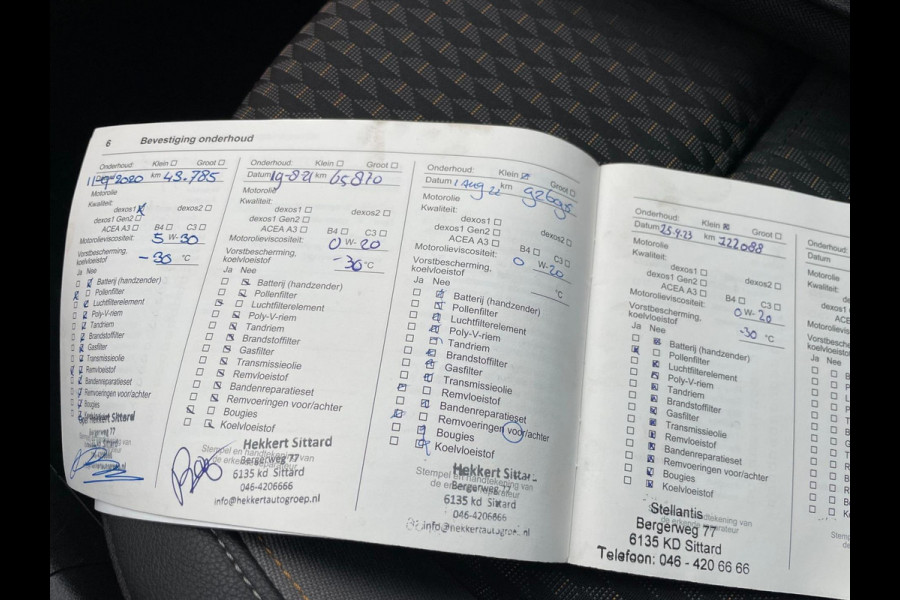 6 Bevestiging onderhoud
Onderhoud: Klein Groot
11-9-2020 km 43.785
Motorolie
Kwaliteit:
dexos1 dexos2
dexos1 Gen2
ACEA A3 B4 C3
Motorolieviscositeit: 5 W-30
Vorstbescherming, koelvloeistof -30 °C
Ja Nee
Batterij (handzender)
Pollenfilter
Luchtfilterelement
Poly-V-riem
Tandriem
Brandstoffilter
Gasfilter
Transmissieolie
Remvloeistof
Bandenreparatieset
Remvoeringen voor/achter
Bougies
Hekkert Sittard
Bergerweg 77
Onderhoud: Klein Groot
Datum 19-8-21 km 65810
Motorolie
Kwaliteit:
dexos1 dexos2
dexos1 Gen2
ACEA A3 B4 C3
Motorolieviscositeit: 0 W-20
Vorstbescherming,
koelvloeistof -36 °C
Ja Nee
Batterij (handzender)
Pollenfilter
Luchtfilterelement
Poly-V-riem
Tandriem
Brandstoffilter
Gasfilter
Transmissieolie
Remvloeistof
Bandenreparatieset
Remvoeringen voor/achter
Bougies
Koelvloeistof
Stempel en handtekening van
de erkende reparateur
Hekkert Sittard
Bergerweg 77
6135 kd Sittard
046-4206666
info@hekkertautogroep.nl
Onderhoud: Klein Groot
Datum 1 Aug 22 km
Motorolie
Kwaliteit:
dexos1 dexos2
dexos1 Gen2
ACEA A3 B4 C3
Motorolieviscositeit: 0 W-20
Vorstbescherming,
koelvloeistof °C
Ja Nee
Batterij (handzender)
Pollenfilter
Luchtfilterelement
Poly-V-riem
Tandriem
Brandstoffilter
Gasfilter
Transmissieolie
Remvloeistof
Bandenreparatieset
Remvoeringen voor/achter
Bougies
Koelvloeistof
Stempel en handtekening van
de erkende reparateur
Hekkert Sittar
Bergerweg 77
6135 kd Sittard
046-4206666
info@hekkertautogroep.nl
Onderhoud: Klein Groot
Datum 25.4.23 km 122088
Motorolie
Kwaliteit:
dexos1 dexos2
dexos1 Gen2
ACEA A3 B4 C3
Motorolieviscositeit: 0 W-20
Vorstbescherming,
koelvloeistof -30 °C
Ja Nee
Batterij (handzender)
Pollenfilter
Luchtfilterelement
Poly-V-riem
Tandriem
Brandstoffilter
Gasfilter
Transmissieolie
Remvloeistof
Bandenreparatieset
Remvoeringen voor/achter
Bougies
Koelvloeistof
Stellantis
Bergerweg 77
6135 KD Sittard
Telefoon: 046 - 420 66 66
Onderhoud:
Datum
Motorolie
Kwaliteit:
dexos1
dexos1 G
ACEA
Motorolievis
Vorstbesche
koelvloeisto
Ja Nee